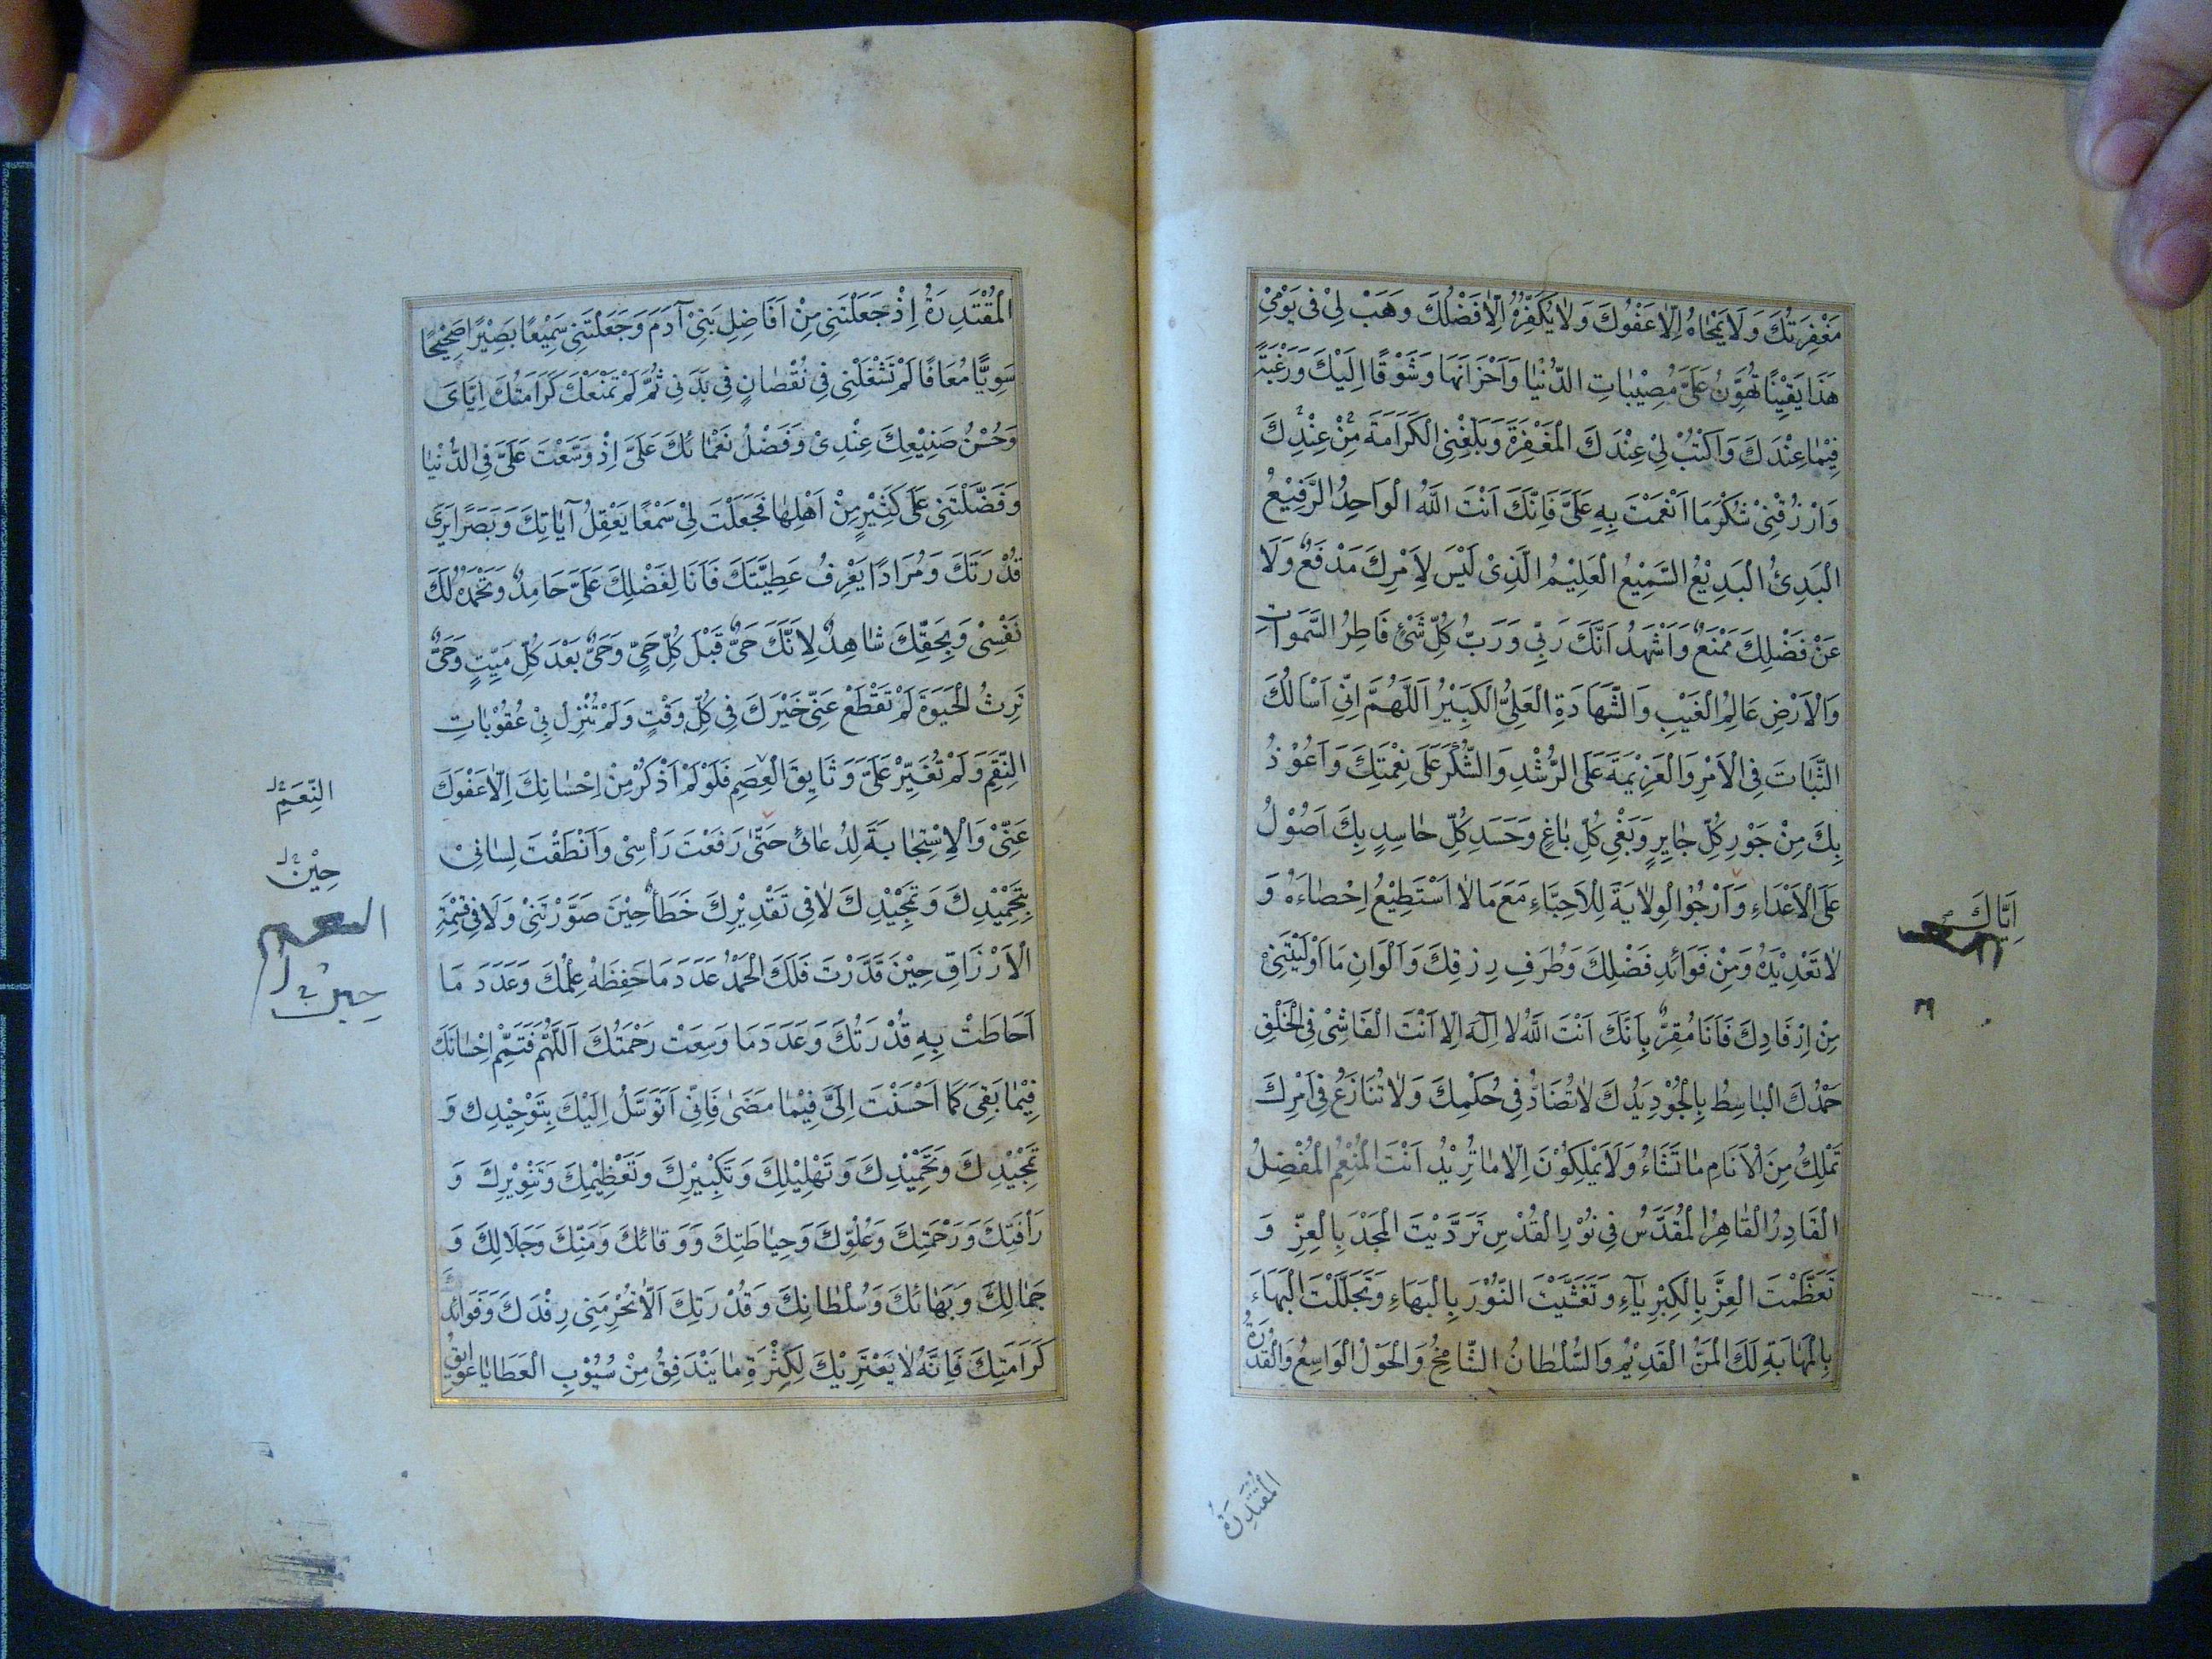 مَغْفِرَتُكَ وَلَا يَمْحَاهُ اِلَّا عَفْوُكَ وَلَا يُكَفِّرُهُ اِلَّا فَضْلُكَ وَهَبْ لِيْ فِى يَوْمِيْ
هَذَا يَقِيْنًا تُهَوِّنُ عَلَىَّ مُصِيْبَاتِ الدُّنْيَا وَاَحْزَانَهَا وَشَوْقًا اِلَيْكَ وَرَغْبَةً
فِيْمَا عِنْدَكَ وَاَكْتُبْ لِيْ عِنْدَكَ الْمَغْفِرَةَ وَبَلِّغْنِى الْكَرَامَةَ مِنْ عِنْدِكَ
وَارْزُقْنِىْ شُكْرَ مَا اَنْعَمْتَ بِهِ عَلَىَّ فَاِنَّكَ اَنْتَ اللّٰهُ الْوَاحِدُ الرَّفِيْعُ
الْبَدِئُ الْبَدِيْعُ السَّمِيْعُ الْعَلِيْمُ الَّذِىْ لَيْسَ لِاَمْرِكَ مَدْفَعٌ وَلَا
عَنْ فَضْلِكَ مَمْنَعٌ وَاَشْهَدُ اَنَّكَ رَبِّى وَرَبُّ كُلِّ شَىْءٍ فَاطِرُ السَّمٰوَاتِ
وَالْاَرْضِ عَالِمُ الْغَيْبِ وَالشَّهَادَةِ الْعَلِىُّ الْكَبِيْرُ اَللّٰهُمَّ اِنِّى اَسْاَلُكَ
الثَّبَاتَ فِى الْاَمْرِ وَالْعَزِيْمَةَ عَلَى الرُّشْدِ وَالشُّكْرَ عَلَى نِعْمَتِكَ وَاَعُوْذُ
بِكَ مِنْ جَوْرِ كُلِّ جَايِرٍ وَبَغْىِ كُلِّ بَاغٍ وَحَسَدِ كُلِّ حَاسِدٍ بِكَ اَصُوْلُ
عَلَى الْاَعْدَاءِ وَ اَرْجُوْا الْوِلَايَةَ لِلْاَحِبَّاءِ مَعَ مَا لَا اَسْتَطِيْعُ اِحْصَاءَهُ وَ
لَا تَعْدِيْدَهُ وَمِنْ فَوَائِدِ فَضْلِكَ وَطُرَفِ رِزْقِكَ وَاَلْوَانِ مَا اَوْلَيْتَنِىْ
مِنْ اِرْفَادِكَ فَاَنَا مُقِرٌّ بِاَنَّكَ اَنْتَ اللّٰهُ لَا اِلٰهَ اِلَّا اَنْتَ الْفَاشِىْ فِى الْخَلْقِ
حَمْدُكَ الْبَاسِطُ بِالْجُوْدِ يَدُكَ لَا تُضَادُّ فِى حُكْمِكَ وَلَا تُنَازَعُ فِى اَمْرِكَ
تَمْلِكُ مِنَ الْاَنَامِ مَا تَشَاءُ وَلَا يَمْلِكُوْنَ اِلَّا مَا تُرِيْدُ اَنْتَ الْمُنْعِمُ الْمُفْضِلُ
الْقَادِرُ الْقَاهِرُ الْمُقَدَّسُ فِى نُوْرِ الْقُدْسِ تَرَدَّيْتَ الْمَجْدَ بِالْعِزِّ وَ
تَعَظَّمْتَ الْعِزَّ بِالْكِبْرِيَآءِ وَتَغَشَّيْتَ النُّوْرَ بِالْبَهَاءِ وَتَجَلَّلْتَ الْبَهَاءَ
بِالْمَهَابَةِ لَكَ الْمَنُّ الْقَدِيْمُ وَالسُّلْطَانُ الشَّامِخُ وَالْحَوْلُ الْوَاسِعُ وَالْقُدْرَةُ
اِيَّاكَ
الْمُقْتَدِرَةُ
الْمُقْتَدِرَةُ اِذْ جَعَلْتَنِى مِنْ اَفَاضِلِ بَنِىْ آدَمَ وَجَعَلْتَنِى سَمِيْعًا بَصِيْرًا صَحِيْحًا
سَوِيًّا مُعَافًا لَمْ تَشْغَلْنِى فِى نُقْصَانٍ فِى بَدَنِى ثُمَّ لَمْ تَمْنَعْكَ كَرَامَتُكَ اِيَّاىَ
وَحُسْنُ صَنِيْعِكَ عِنْدِىْ وَفَضْلُ نَعْمَائِكَ عَلَىَّ اِذْ وَسَّعْتَ عَلَىَّ فِى الدُّنْيَا
وَفَضَّلْتَنِى عَلَى كَثِيْرٍ مِنْ اَهْلِهَا فَجَعَلْتَ لِىْ سَمْعًا يَعْقِلُ آيَاتِكَ وَبَصَرًا يَرَى
قُدْرَتَكَ وَمُرَادًا يَعْرِفُ عَطِيَّتَكَ فَاَنَا لِفَضْلِكَ عَلَىَّ حَامِدٌ وَتَحْمَدُهُ لَكَ
نَفْسِىْ وَبِحَقِّكَ شَاهِدٌ لِاَنَّكَ حَىٌّ قَبْلَ كُلِّ حَىٍّ وَحَىٌّ بَعْدَ كُلِّ مَيِّتٍ وَحَىٌّ
تَرِثُ الْحَيٰوةَ لَمْ تَقْطَعْ عَنِّى خَيْرَكَ فِى كُلِّ وَقْتٍ وَلَمْ تُنْزِلْ بِىْ عُقُوْبَاتِ
النِّقَمِ وَلَمْ تُغَيِّرْ عَلَىَّ وَثَايِقَ الْعِصَمِ فَلَوْ لَمْ اَذْكُرْ مِنْ اِحْسَانِكَ اِلَّا عَفْوَكَ
عَنِّىْ وَالْاِسْتِجَابَةَ لِدُعَائِى حَتّٰى رَفَعْتَ رَأْسِىْ وَاَنْطَقْتَ لِسَانِىْ
بِتَحْمِيْدِكَ وَتَمْجِيْدِكَ لَا فِى تَقْدِيْرِكَ خَطَأً حِيْنَ صَوَّرْتَنِىْ وَلَا فِى قِسْمَةِ
الْاَرْزَاقِ حِيْنَ قَدَّرْتَ فَلَكَ الْحَمْدُ عَدَدَ مَا حَفِظَهُ عِلْمُكَ وَعَدَدَ مَا
اَحَاطَتْ بِهِ قُدْرَتُكَ وَعَدَدَ مَا وَسِعَتْ رَحْمَتُكَ اَللّٰهُمَّ فَتَمِّمْ اِحْسَانَكَ
فِيْمَا بَقِىَ كَمَا اَحْسَنْتَ اِلَىَّ فِيْمَا مَضَىٰ فَاِنِّى اَتَوَسَّلُ اِلَيْكَ بِتَوْحِيْدِكَ وَ
تَمْجِيْدِكَ وَتَحْمِيْدِكَ وَتَهْلِيْلِكَ وَتَكْبِيْرِكَ وَتَعْظِيْمِكَ وَتَنْوِيْرِكَ وَ
رَأْفَتِكَ وَرَحْمَتِكَ وَعُلُوِّكَ وَحِيَاطَتِكَ وَوَقَائِكَ وَمَنِّكَ وَجَلَالِكَ وَ
جَمَالِكَ وَبَهَائِكَ وَسُلْطَانِكَ وَقُدْرَتِكَ اَلَّا تَحْرِمَنِى رِفْدَكَ وَفَوَائِدَ
كَرَامَتِكَ فَاِنَّهُ لَا يَعْتَرِيْكَ لِكَثْرَةِ مَا يَنْدَفِقُ مِنْ سُيُوْبِ الْعَطَايَا عَوَايِقُ
النِّعَمِ
حِيْنَ
النعم
حين